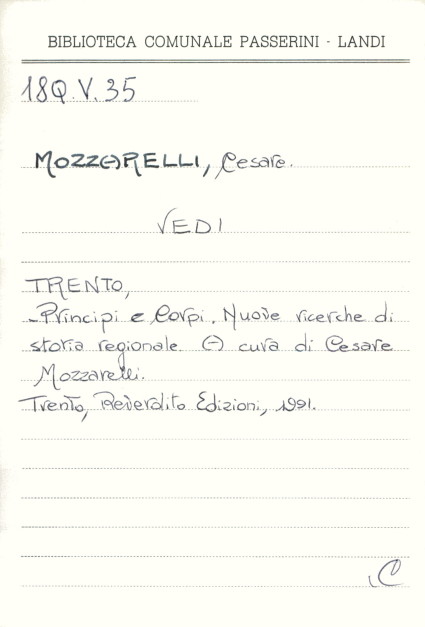 BIBLIOTECA COMUNALE PASSERINI - LANDI
18Q.V.35
MOZZARELLI, Cesare.
VEDI
TRENTO,
-Principi e Corpi. Nuove ricerche di
storia regionale. A cura di Cesare
Mozzarelli.
Trento, Reverdito Edizioni, 1991.
C